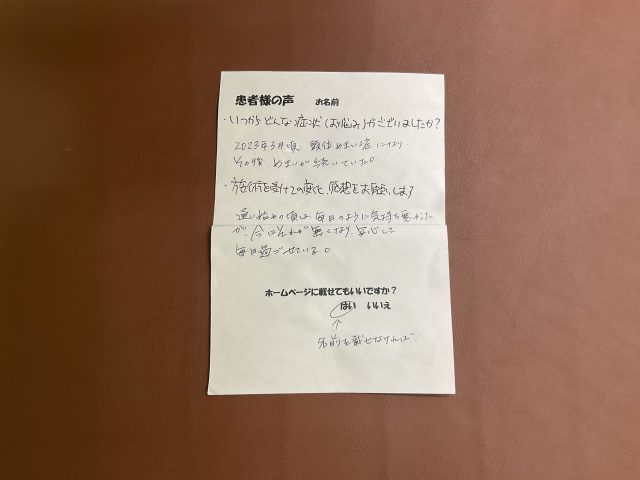 患者様の声　お名前
・いつからどんな症状(お悩み)がございましたか?
2023年3月頃 頭位めまい症になり
その後、めまいが続いていた。
・施術を受けての変化、感想をお願いします
通い始めの頃は毎日のように気持ち悪かった
が、今はそれが無くなり、安心して
毎日過ごせている。
ホームページに載せてもいいですか?
はい　いいえ
↑
名前を載せなければ